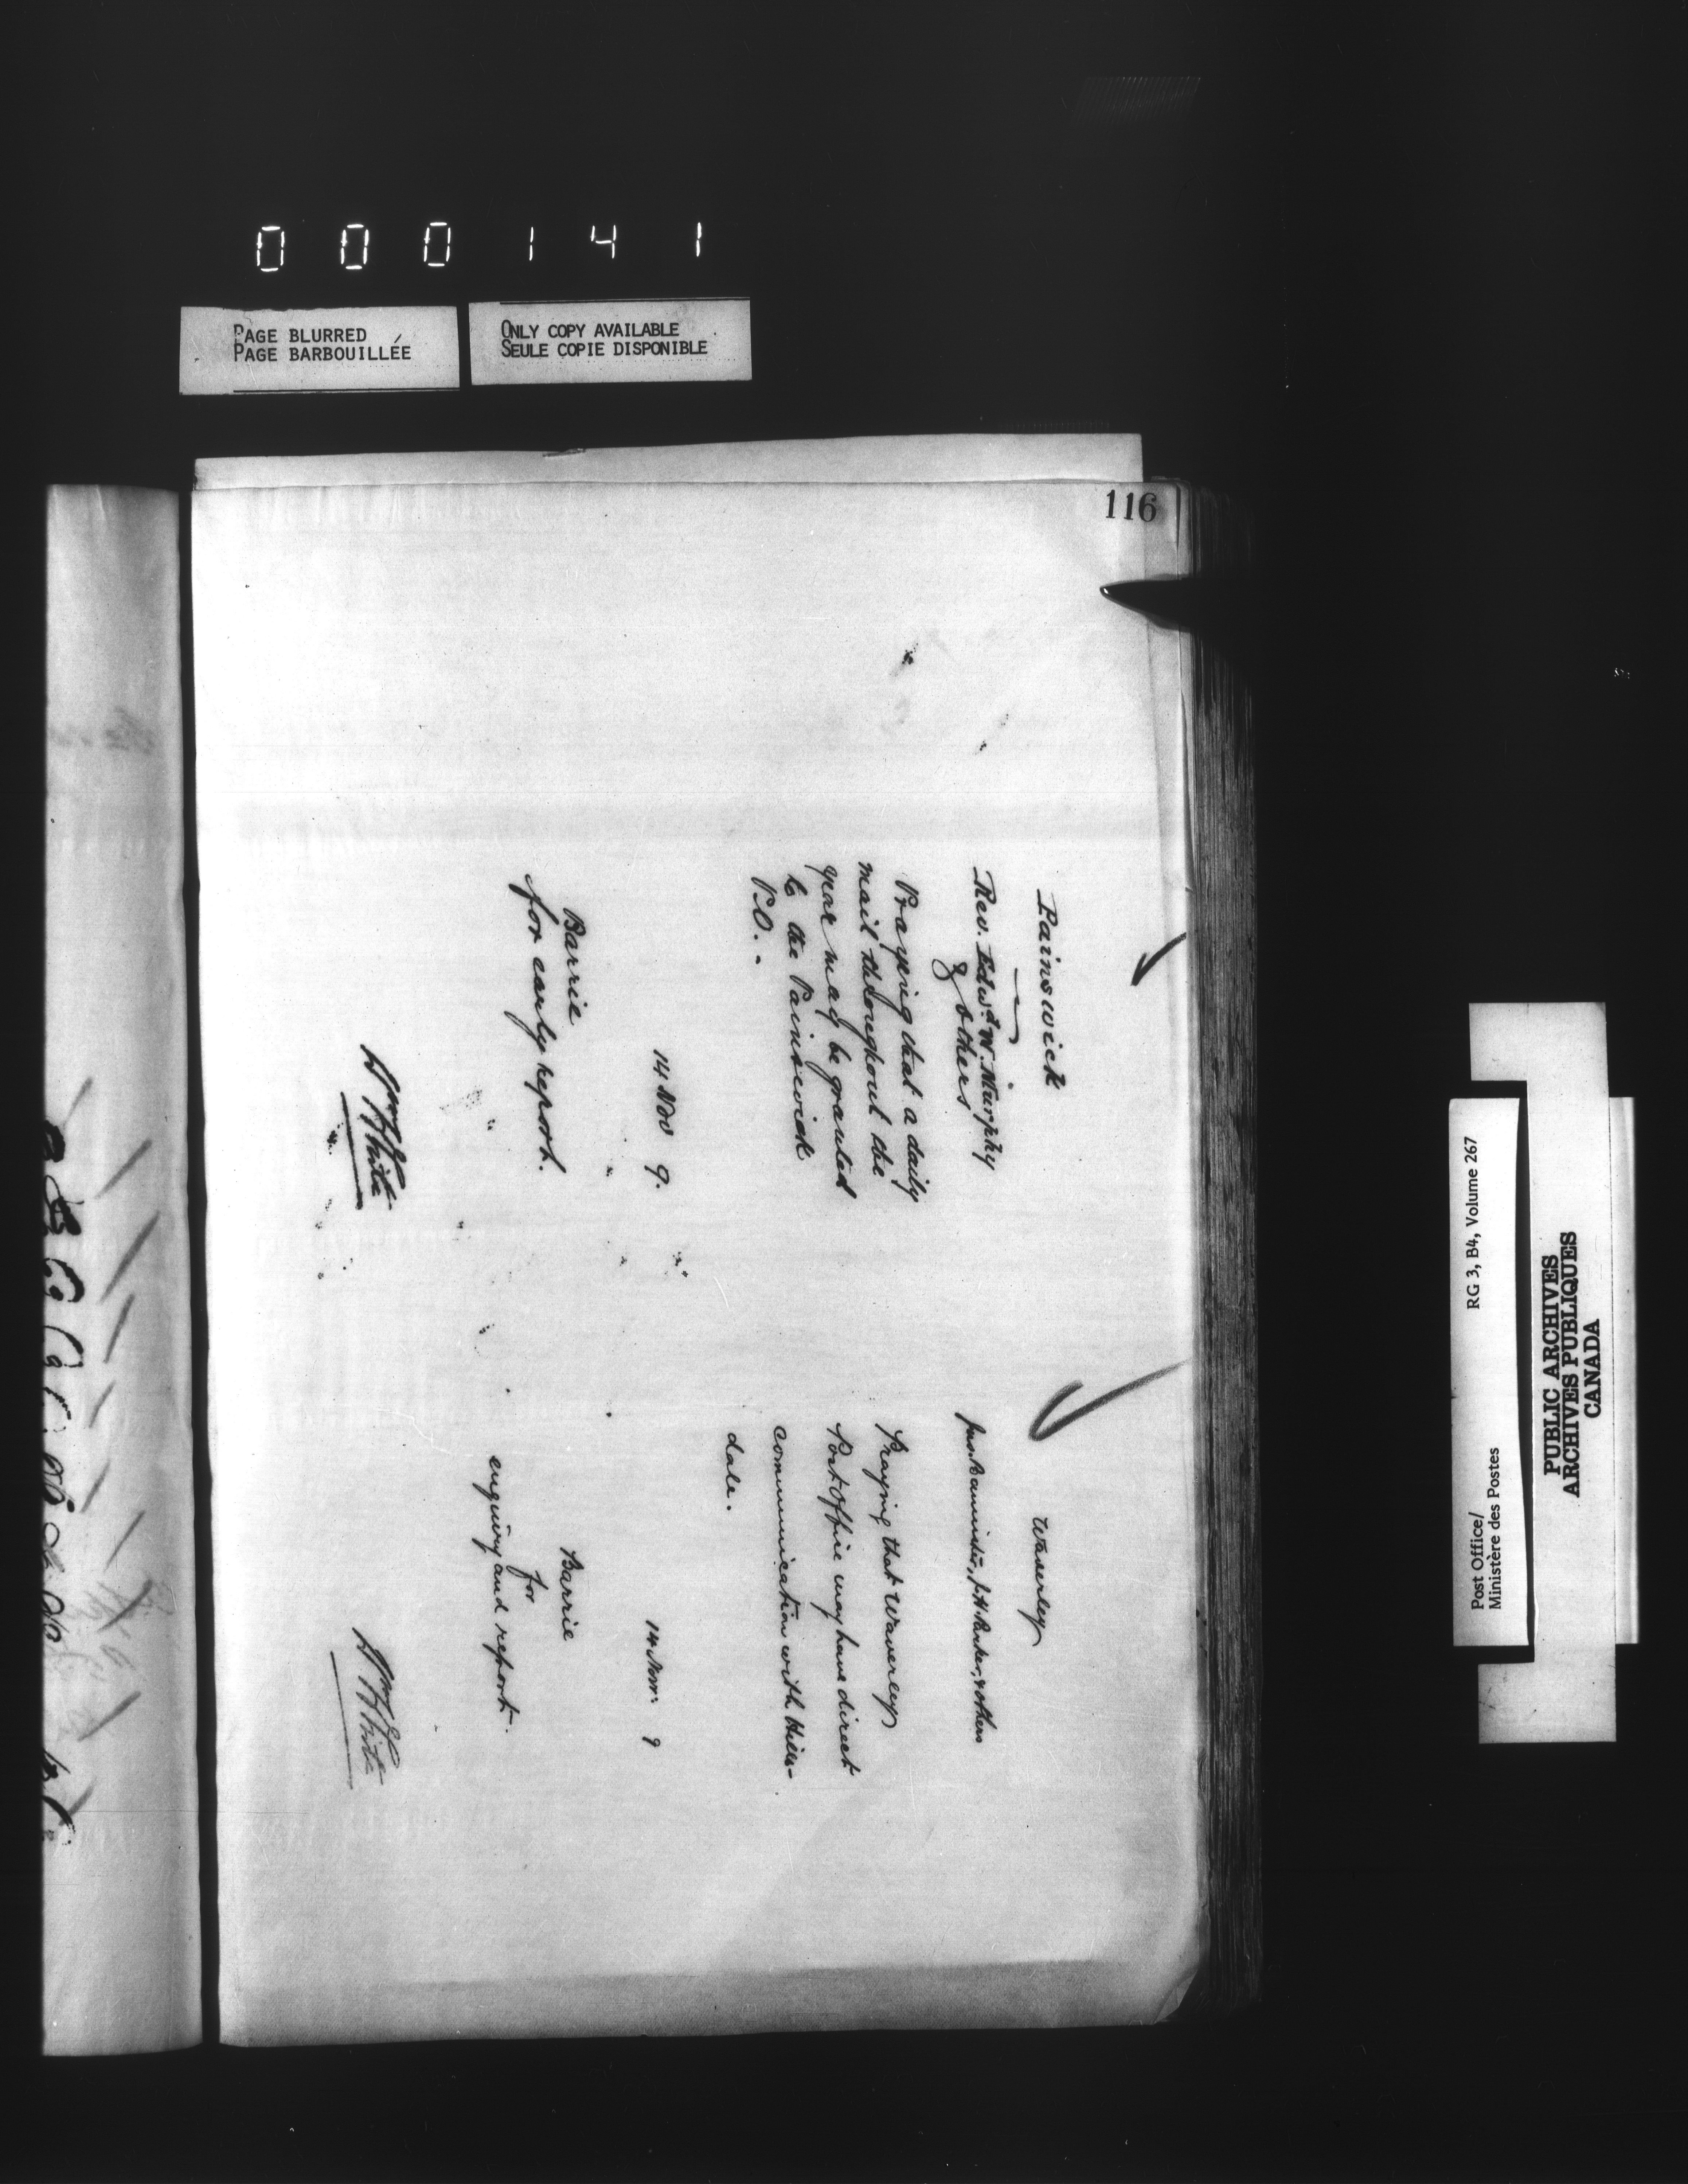 000141
PAGE BLURRED
PAGE BARBOUILLÉE
ONLY COPY AVAILABLE
SEULE COPIE DISPONIBLE
116
Painswick
Rev. Edwd. W. Murphy
& others
Praying that a daily
mail throughout the
year may be granted
to the Painswick
P.O. -
14 Nov 9.
Barrie
for early report.
Wm White
Waverley
Jno. Bannister, J. H. Parker, & others
Praying that Waverley
Post Office may have direct
communication with Hills-
dale.
14 Nov: 9
Barrie
for
enquiry and report.
Wm White
Post Office/
Ministère des Postes
RG 3, B4, Volume 267
PUBLIC ARCHIVES
ARCHIVES PUBLIQUES
CANADA